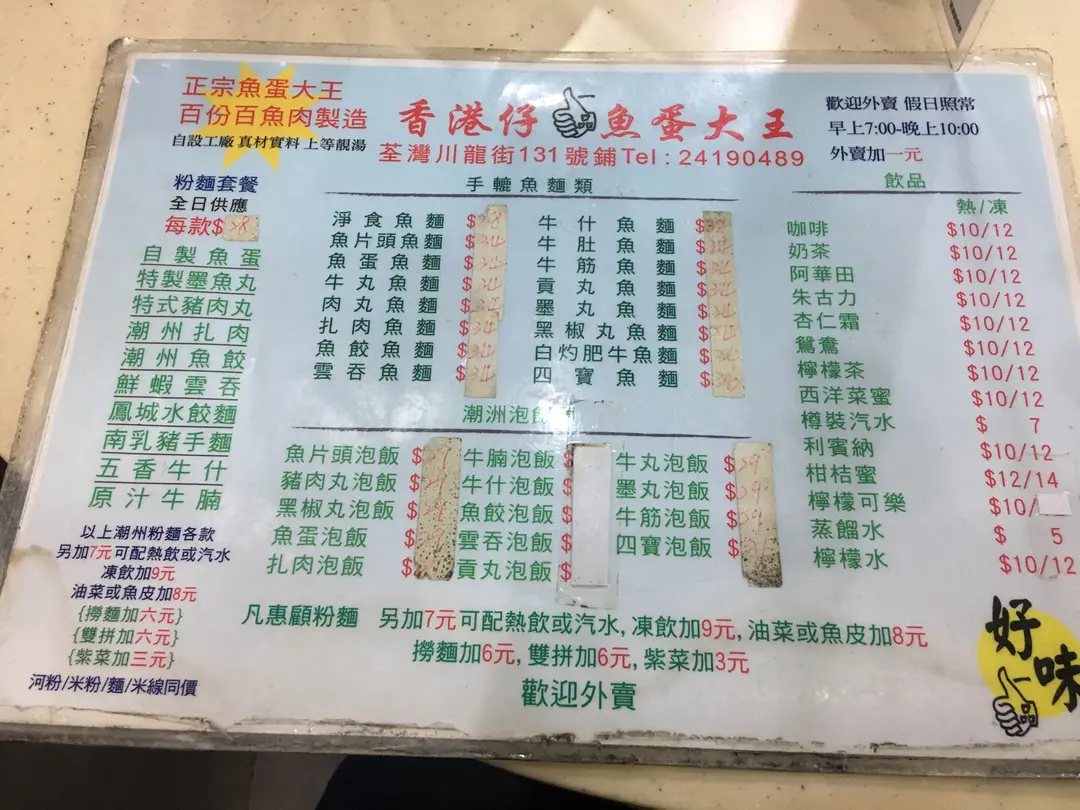 正宗魚蛋大王
百份百魚肉製造
自設工廠 真材實料 上等靚湯
香港仔 魚蛋大王
荃灣川龍街131號鋪Tel : 24190489
歡迎外賣 假日照常
早上7:00-晚上10:00
外賣加一元
粉麵套餐
全日供應
每款$28
自製魚蛋
特製墨魚丸
特式豬肉丸
潮州扎肉
潮州魚餃
鮮蝦雲吞
鳳城水餃麵
南乳豬手麵
五香牛什
原汁牛腩
以上潮州粉麵各款
另加7元可配熱飲或汽水
凍飲加9元
油菜或魚皮加8元
{撈麵加六元}
{雙拼加六元}
{紫菜加三元}
河粉/米粉/麵/米線同價
手轆魚麵類
淨食魚麵 $
魚片頭魚麵 $34
魚蛋魚麵 $34
牛丸魚麵 $34
肉丸魚麵 $34
扎肉魚麵 $34
魚餃魚麵 $34
雲吞魚麵 $34
牛什魚麵 $
牛肚魚麵 $34
牛筋魚麵 $34
貢丸魚麵 $34
墨丸魚麵 $34
黑椒丸魚麵 $34
白灼肥牛魚麵 $34
四寶魚麵 $
潮洲泡飯
魚片頭泡飯 $29
豬肉丸泡飯 $29
黑椒丸泡飯 $29
魚蛋泡飯 $
扎肉泡飯 $
牛腩泡飯 $
牛什泡飯 $
魚餃泡飯 $
雲吞泡飯 $
貢丸泡飯 $
牛丸泡飯 $29
墨丸泡飯 $29
牛筋泡飯 $29
四寶泡飯 $
凡惠顧粉麵 另加7元可配熱飲或汽水, 凍飲加9元, 油菜或魚皮加8元
撈麵加6元, 雙拼加6元, 紫菜加3元
歡迎外賣
飲品
熱/凍
咖啡 $10/12
奶茶 $10/12
阿華田 $10/12
朱古力 $10/12
杏仁霜 $10/12
鴛鴦 $10/12
檸檬茶 $10/12
西洋菜蜜 $10/12
樽裝汽水 $ 7
利賓納 $10/12
柑桔蜜 $12/14
檸檬可樂 $10/
蒸餾水 $ 5
檸檬水 $10/12
好味